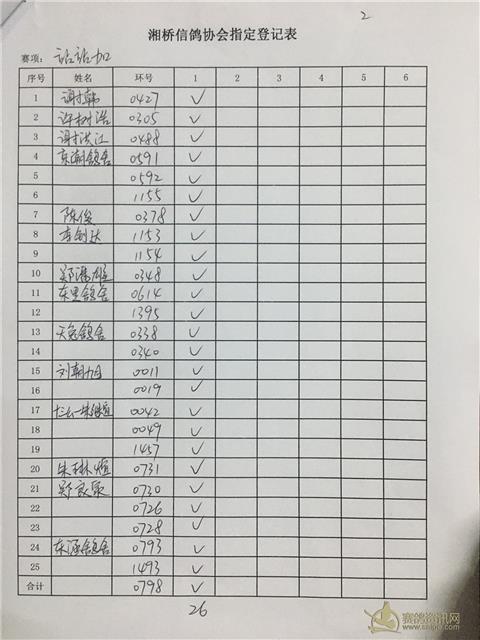 2
湘桥信鸽协会指定登记表
赛项: 站站加
序号 姓名 环号 1 2 3 4 5 6
1 谢韩 0427 ✓
2 许树浩 0305 ✓
3 谢洪江 0488 ✓
4 东湖鸽舍 0591 ✓
5 0592 ✓
6 1155 ✓
7 陈俊 0378 ✓
8 李创达 1153 ✓
9 1154 ✓
10 郑潘雄 0348 ✓
11 东里鸽舍 0614 ✓
12 1395 ✓
13 天兔鸽舍 0338 ✓
14 0340 ✓
15 刘朝旭 0011 ✓
16 0019 ✓
17 0042 ✓
18 0049 ✓
19 1457 ✓
20 朱林煊 0731 ✓
21 0730 ✓
22 0726 ✓
23 0728 ✓
24 东源鸽舍 0793 ✓
25 1493 ✓
合计 0798 ✓
26
赛鸽资讯网
www.saige.com